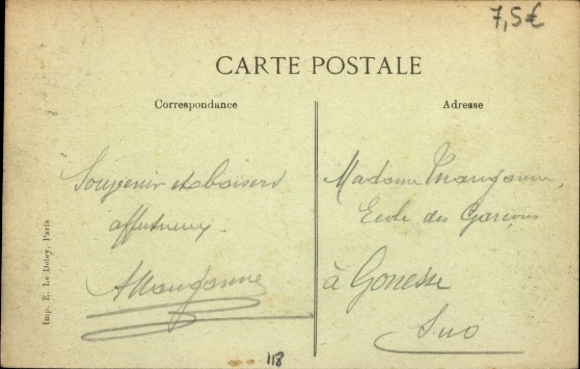 7,5€
CARTE POSTALE
Correspondance
Adresse
Souvenir et baisers
affectueux.
Madame
Ecole des Garçons
à Gonesse
Imp. E. Le Deley, Paris
118